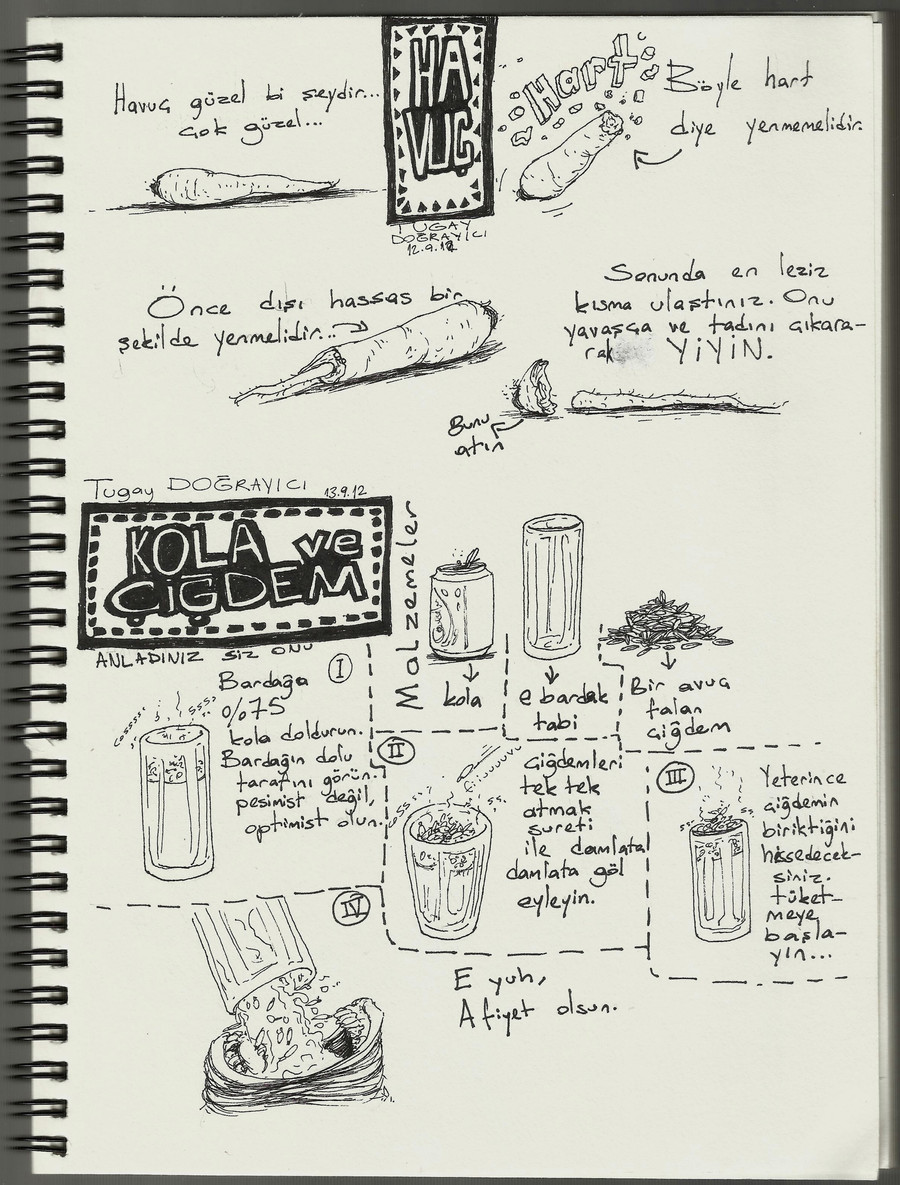 Havuç güzel bi şeydir...
çok güzel...
HA
VUÇ
TUGAY
DOĞRAYICI
12.9.12
Hart
Böyle hart
diye yenmemelidir.
Önce dışı hassas bir
şekilde yenmelidir...
Sonunda en leziz
kısma ulaştınız. Onu
yavaşça ve tadını çıkara-
rak YİYİN.
Bunu
atın
Tugay DOĞRAYICI 13.9.12
KOLA ve
ÇİĞDEM
ANLADINIZ SİZ ONU
Malzemeler
kola
e bardak
tabi
Bir avuç
falan
çiğdem
I
Bardağa
%75
kola doldurun.
Bardağın dolu
tarafını görün.
pesimist değil,
optimist olun.
II
Çiğdemleri
tek tek
atmak
sureti
ile damlata
damlata göl
eyleyin.
III
Yeterince
çiğdemin
biriktiğini
hissedecek-
siniz.
tüket-
meye
başla-
yın...
IV
E yuh,
Afiyet olsun.